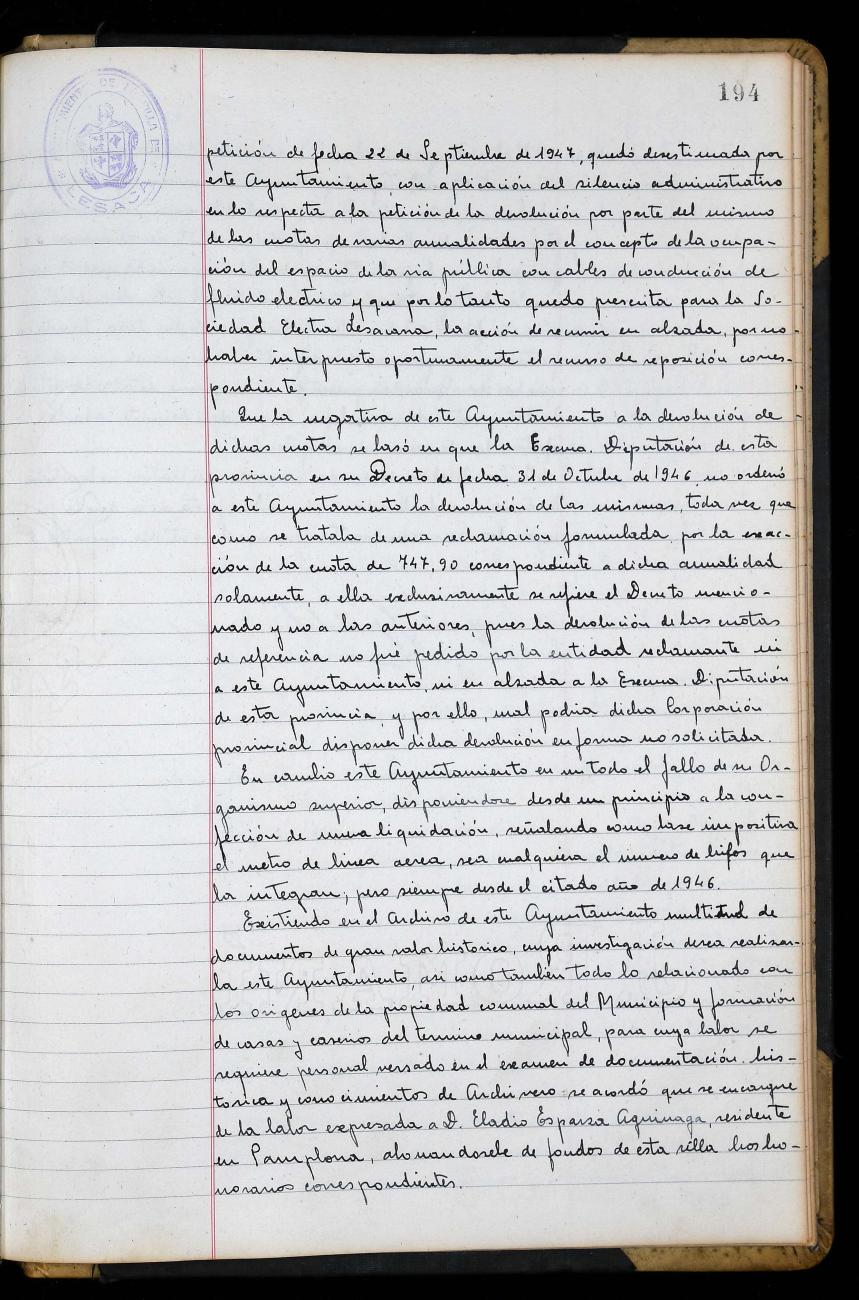 194
LESACA
petición de fecha 22 de Septiembre de 1947, quedó desestimada por
este Ayuntamiento, con aplicación del silencio administrativo
en lo respecta a la petición de la devolución por parte del mismo
de las cuotas de varias anualidades por el concepto de la ocupa-
ción del espacio de la via pública con cables de conducción de
fluido electrico y que por lo tanto quedo prescrita para la So-
ciedad Electra Lesacana, la acción de recurrir en alzada, por no
haber interpuesto oportunamente el recurso de reposición corres-
pondiente.
Que la negativa de este Ayuntamiento a la devolución de
dichas cuotas se basó en que la Excma. Diputación de esta
provincia en su Decreto de fecha 31 de Octubre de 1946, no ordenó
a este Ayuntamiento la devolución de las mismas, toda vez que
como se trataba de una reclamación formulada por la exac-
ción de la cuota de 747,90 correspondiente a dicha anualidad
solamente, a ella exclusivamente se refiere el Decreto mencio-
nado y no a las anteriores, pues la devolución de las cuotas
de referencia no fué pedido por la entidad reclamante ni
a este Ayuntamiento, ni en alzada a la Excma. Diputación
de esta provincia, y por ello, mal podria dicha Corporación
provincial disponer dicha devolución en forma no solicitada.
En cambio este Ayuntamiento en un todo el fallo de su Or-
ganismo superior, disponiendose desde un principio a la con-
fección de nueva liquidación, señalando como base impositiva
el metro de linea aerea, sea cualquiera el numero de hilos que
la integran; pero siempre desde el citado año de 1946.
Existiendo en el Archivo de este Ayuntamiento multitud de
documentos de gran valor historico, cuya investigación desea realizar-
la este Ayuntamiento, asi como tambien todo lo relacionado con
los origenes de la propiedad comunal del Municipio y formación
de casas y caserios del termino municipal, para cuya labor se
requiere personal versado en el examen de documentación his-
torica y conocimientos de Archivero se acordó que se encargue
de la labor expresada a D. Eladio Esparza Aguinaga, residente
en Pamplona, abonandosele de fondos de esta villa los ho-
norarios correspondientes.